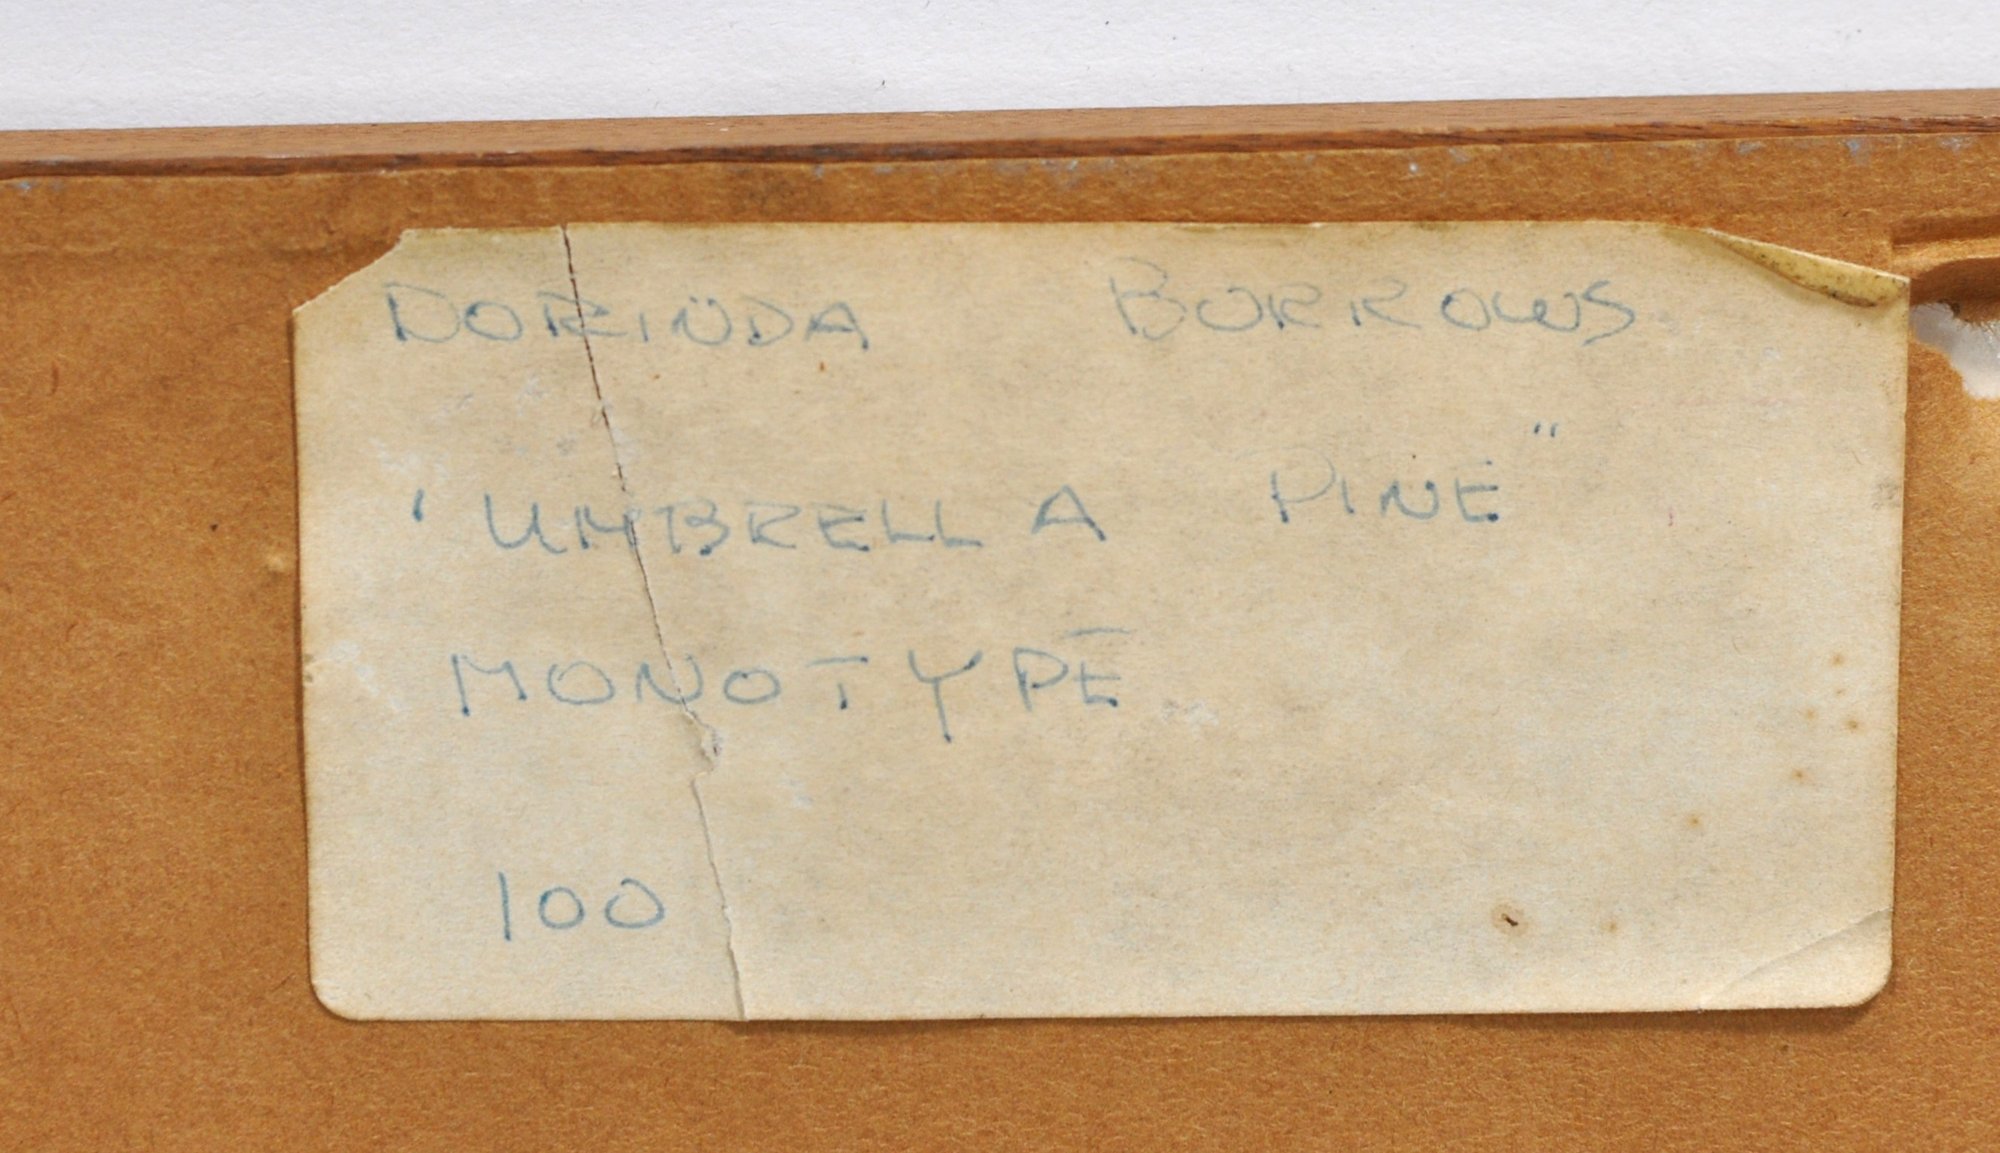 DORINDA BURROWS
'UMBRELLA PINE"
MONOTYPE
100